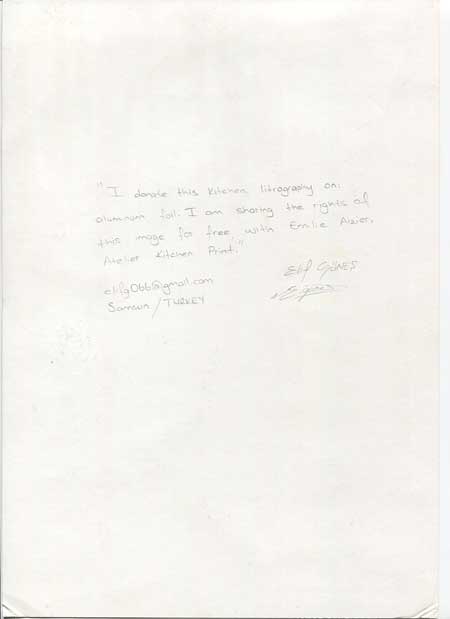 "I donate this kitchen litrography on
aluminum foil. I am sharing the rights of
this image for free with Emilie Aizier,
Atelier Kitchen Print."
Elif GÜNEŞ
elifg066@gmail.com
Samsun / TURKEY